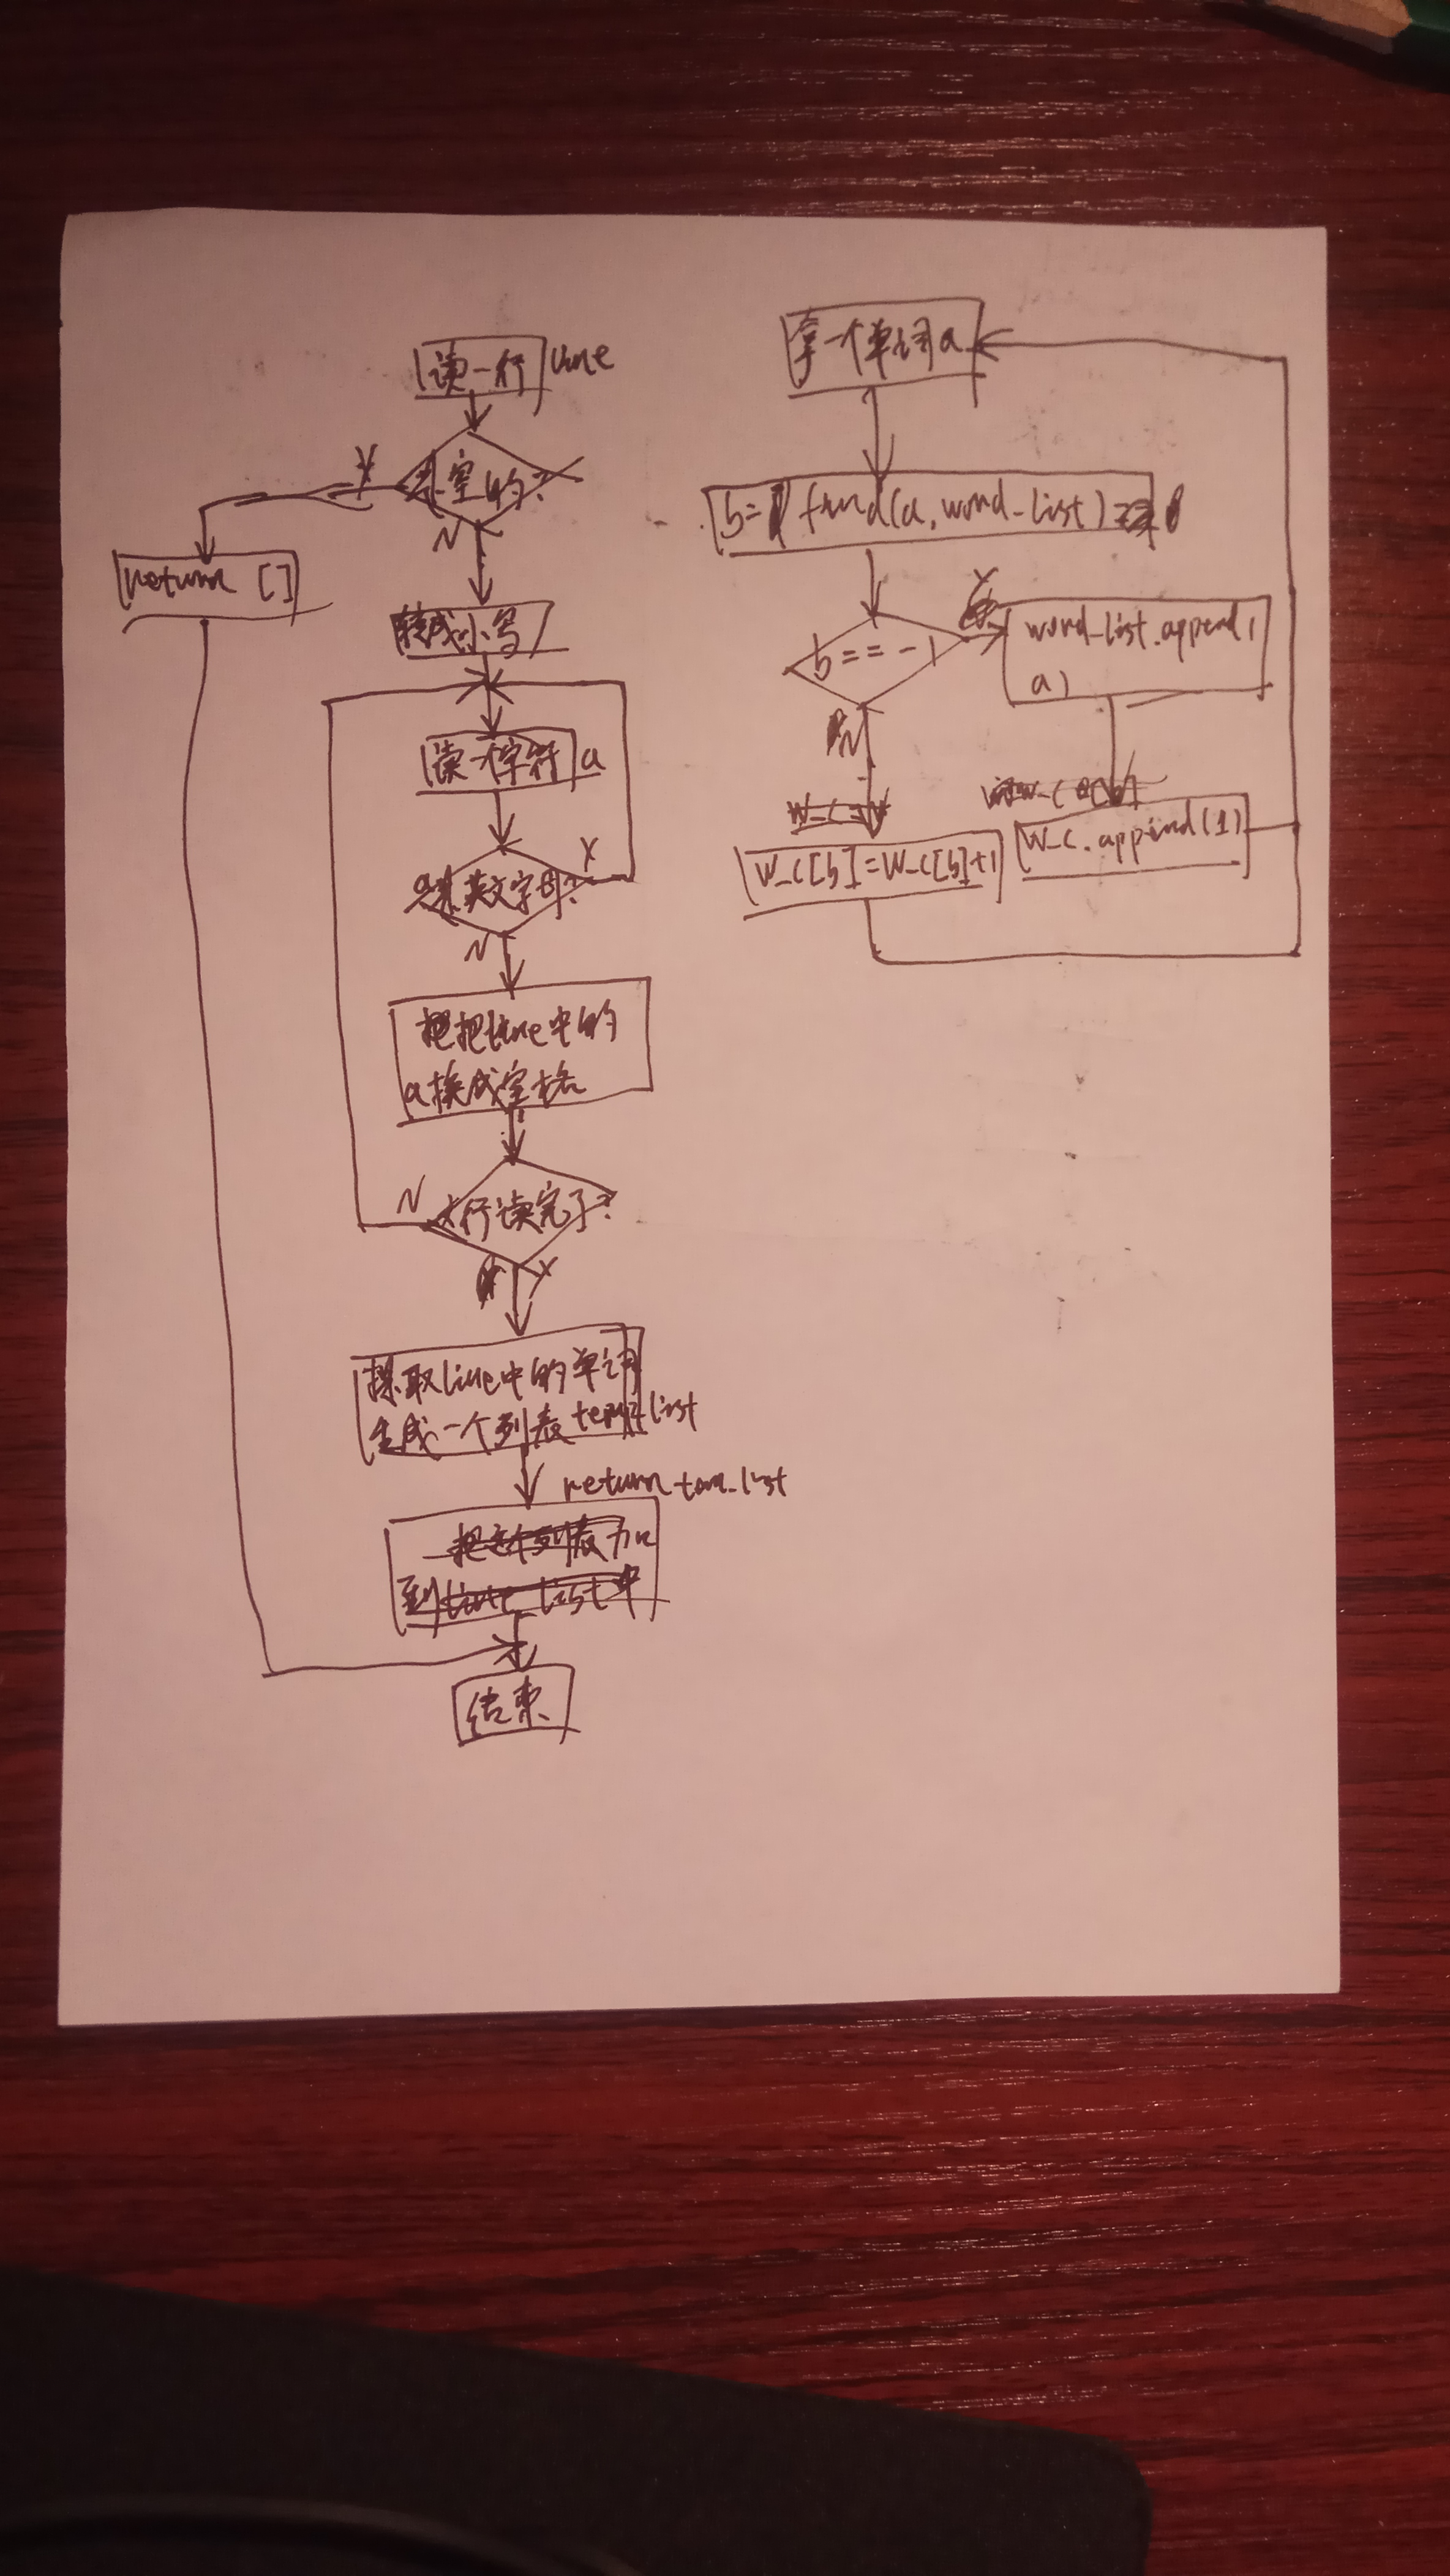 读一行 line
是空的?
Y
N
return []
转成小写
读一个字符 a
a是英文字母?
Y
N
把line中的
a换成空格
本行读完了?
N
Y
提取line中的单词
生成一个列表 temp_list
return tem_list
把这个列表加
到line_list中
结束
拿一个单词a
b= find(a, word_list)
b==-1
Y
N
word_list.append(
a)
W_C[b]=W_C[b]+1
W_C.append(1)